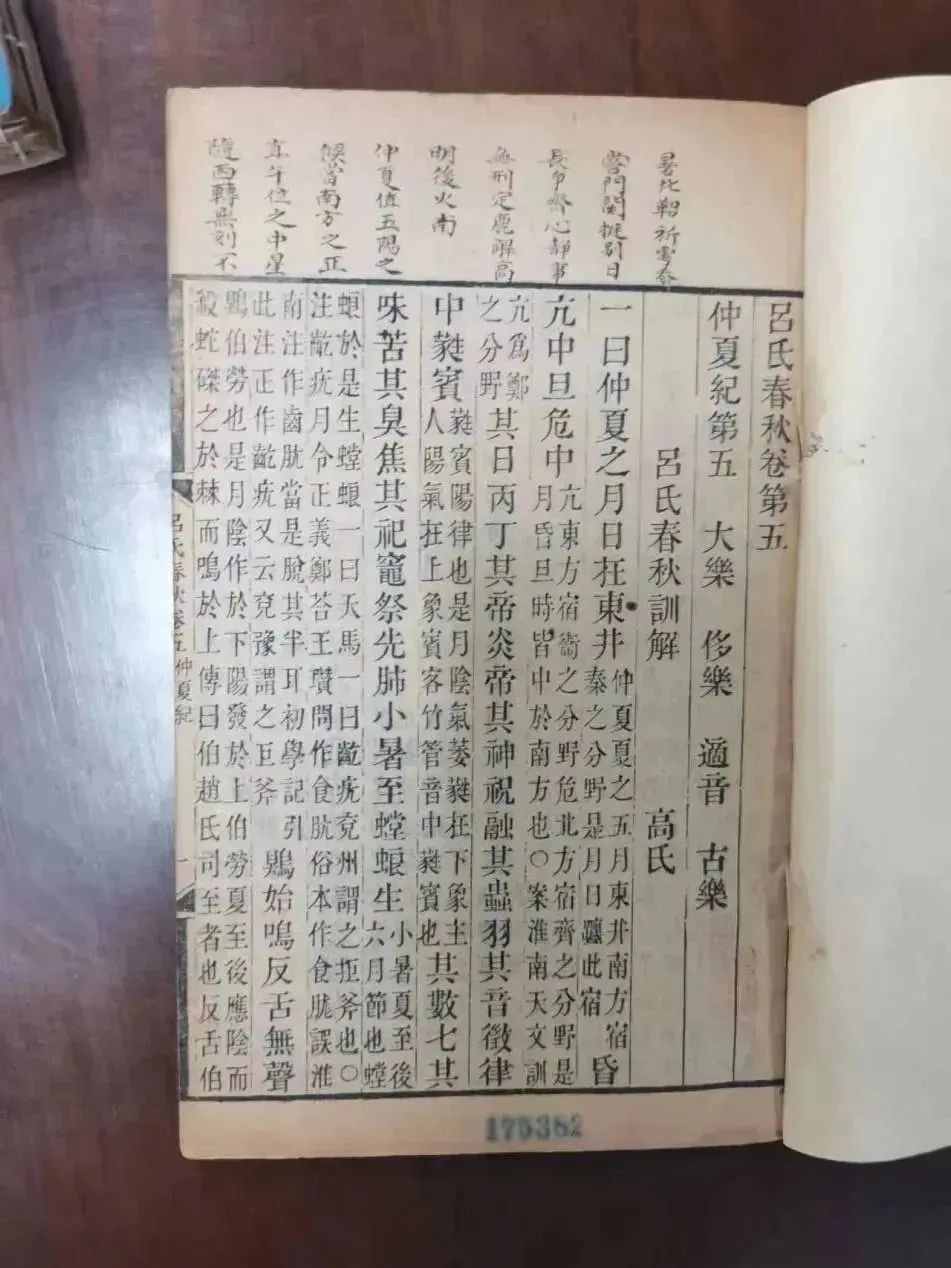 鞀祈雩
門閭挺別日
長爭齋心靜事
無刑定鹿解高
明後火南
仲夏值五陽之
候當南方之正
直午位之中星
隨西轉無刻不
呂氏春秋卷第五
仲夏紀第五 大樂 侈樂 適音 古樂
呂氏春秋訓解 高氏
一曰仲夏之月日在東井 仲夏之五月東井南方宿 秦之分野是月日躔此宿 昏
亢中旦危中 亢東方宿衞之分野危北方宿齊之分野是 月昏旦時皆中於南方也○案淮南天文訓
亢爲鄭 之分野 其日丙丁其帝炎帝其神祝融其蟲羽其音徵律
中蕤賓 蕤賓陽律也是月陰氣萎蕤在下象主 人陽氣在上象賓客竹管音中蕤賓也 其數七其
味苦其臭焦其祀竈祭先肺小暑至螳蜋生 小暑夏至後 六月節也螳
蜋於是生螳蜋一曰天馬一曰齕疣兗州謂之拒斧也○
注齕疣月令正義鄭荅王瓚問作食肬俗本作食胧誤淮
南注作齒肬當是脫其半耳初學記引
此注正作齕疣又云兗豫謂之巨斧 鶪始鳴反舌無聲
鶪伯勞也是月陰作於下陽發於上伯勞夏至後應陰而
殺蛇磔之於棘而鳴於上傳曰伯趙氏司至者也反舌伯
呂氏春秋卷五仲夏紀 一
175382